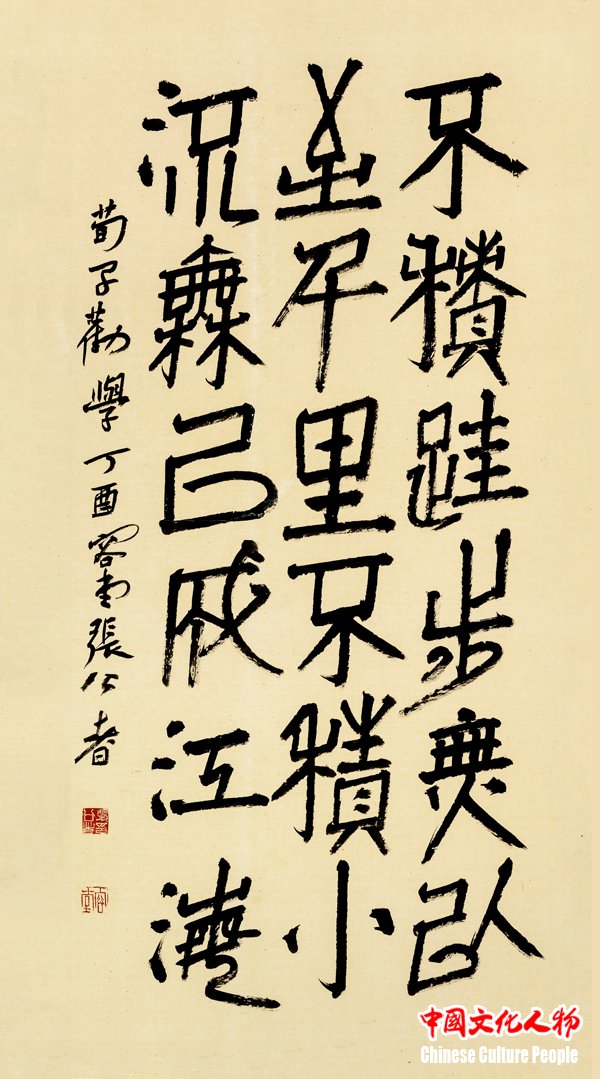 不積跬步無以
至千里不積小
流無以成江海
荀子勸學丁酉容堂張公者
中国文化人物
Chinese Culture People